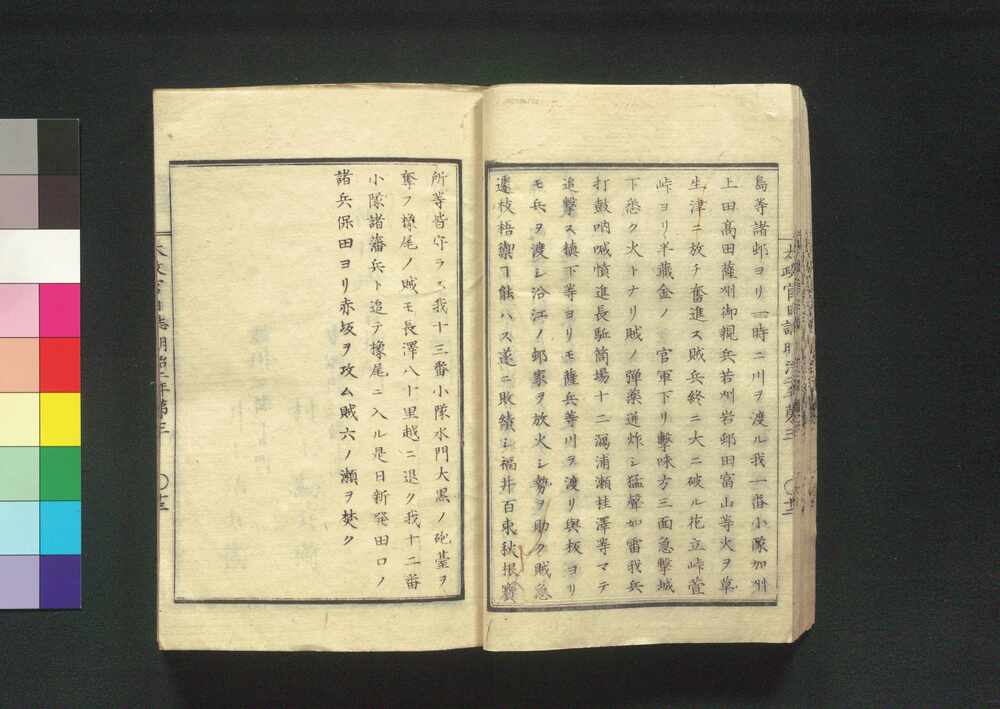 島等諸邨ヨリ一時ニ川ヲ渡ル我一番小隊加州
上田高田薩州御親兵若州岩邨田富山等火ヲ草
生津ニ放チ奮進ス賊兵終ニ大ニ破ル花立峠萱
峠ヨリ半蔵金ノ 官軍下リ撃味方三面急撃城
下悉ク火トナリ賊ノ弾薬迸炸シ猛聲如雷我兵
打鼓吶喊憤進長駈筒場十二潟浦瀬桂澤等マテ
追撃ス槙下等ヨリモ薩兵等川ヲ渡リ與板ヨリ
モ兵ヲ渡シ沿江ノ邨家ヲ放火シ勢ヲ助ク賊急
遽枝梧禦丁能ハス遂ニ敗績シ福井百束秋根寳
太政官日誌明治二年第三 〇廿二
所等皆守ラス我十三番小隊水門大黒ノ砲䑓ヲ
奪フ橡尾ノ賊モ長澤八十里越ニ退ク我十二番
小隊諸藩兵ト追テ橡尾ニ入ル是日新発田口ノ
諸兵保田ヨリ赤坂ヲ攻ム賊六ノ瀬ヲ焚ク
太政官日誌明治二年第三 〇廿三